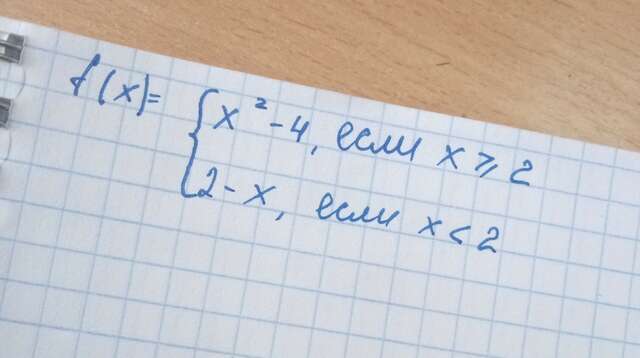 f(x)= { x² - 4, если x ⩾ 2
2 - x, если x < 2